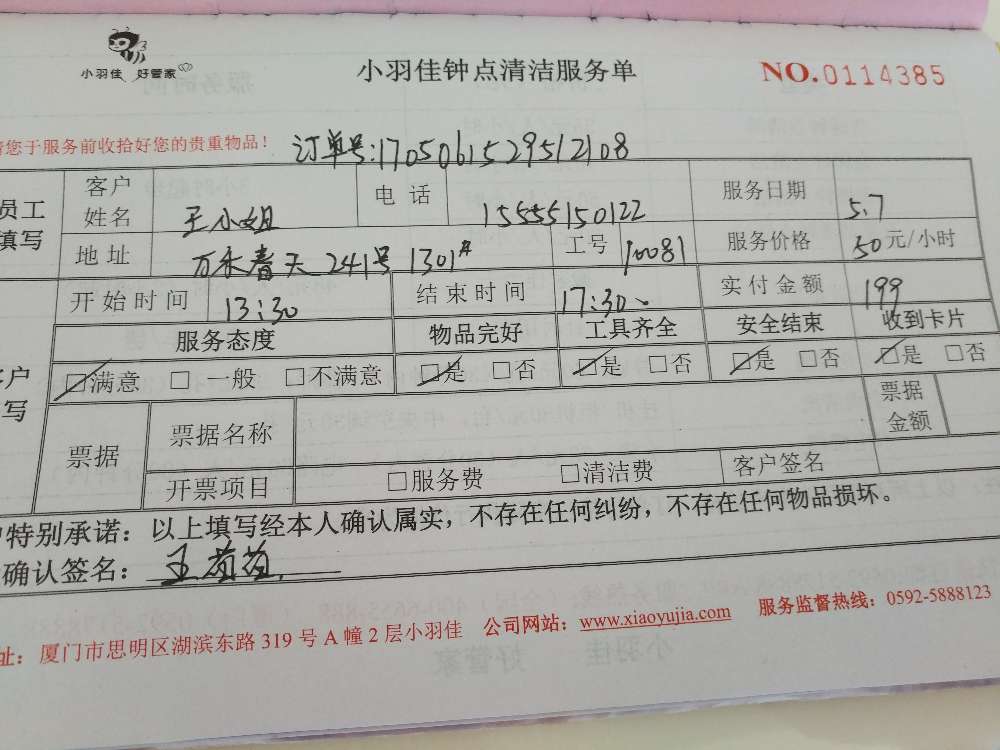 小羽佳 好管家
小羽佳钟点清洁服务单
NO.0114385
请您于服务前收拾好您的贵重物品!
订单号:1705061529512108
员工填写
客户姓名 王小姐 电话 15555150122 服务日期 5.7
地址 万禾春天241号1301# 工号 10081 服务价格 50元/小时
开始时间 13:30 结束时间 17:30 实付金额 199
服务态度 物品完好 工具齐全 安全结束 收到卡片
☑满意 □一般 □不满意 ☑是 □否 ☑是 □否 ☑是 □否 ☑是 □否
票据 票据名称 票据金额
开票项目 □服务费 □清洁费 客户签名
特别承诺:以上填写经本人确认属实,不存在任何纠纷,不存在任何物品损坏。
确认签名:王
址:厦门市思明区湖滨东路319号A幢2层小羽佳 公司网站:www.xiaoyujia.com 服务监督热线:0592-5888123